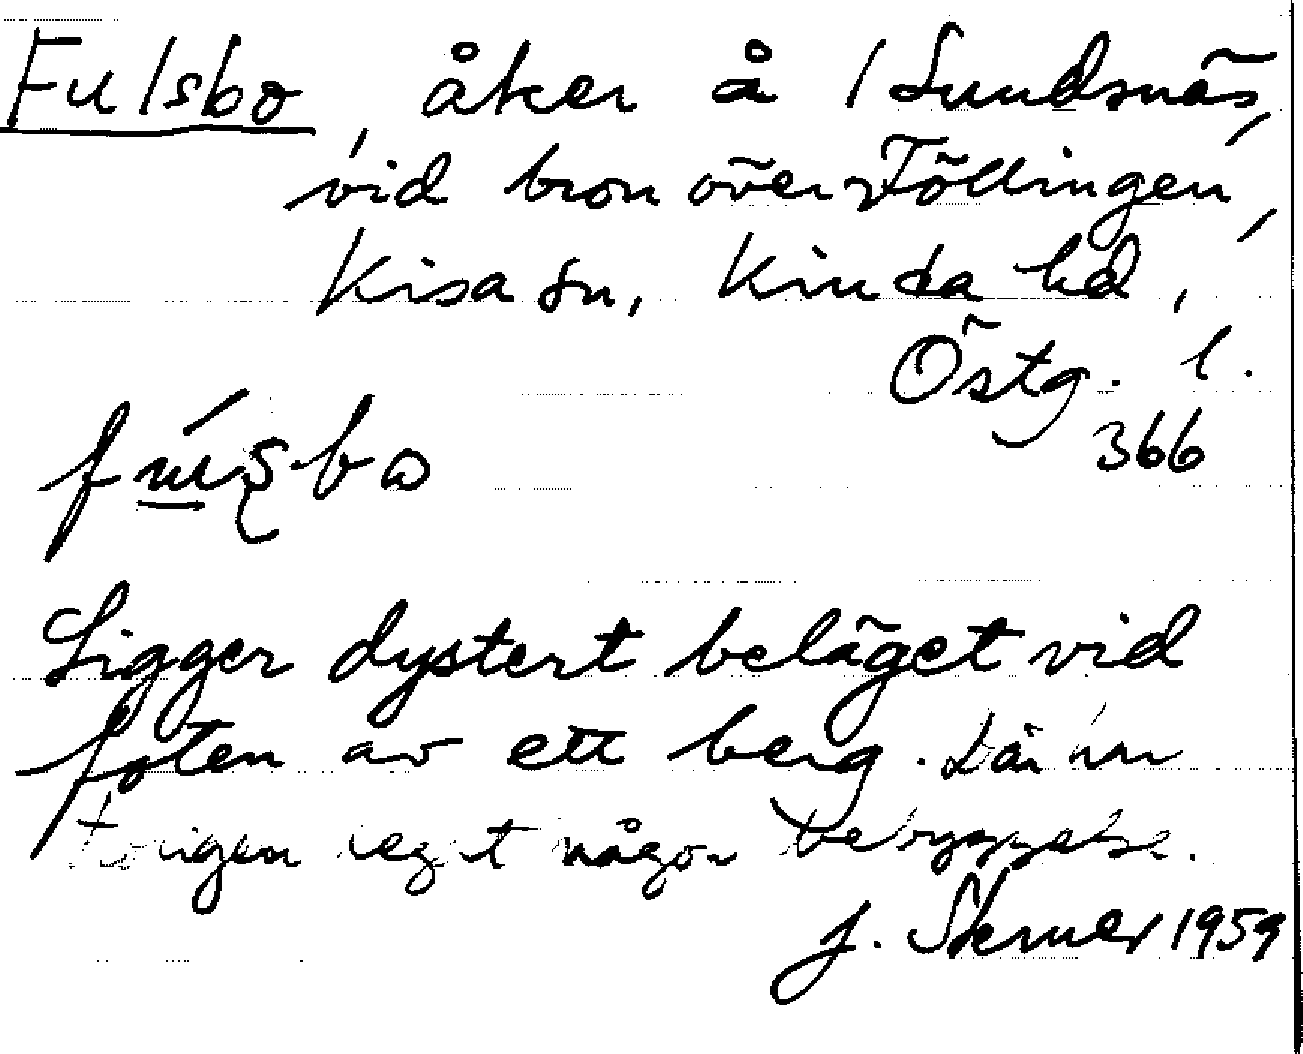 Fulsbo, åker å 1 Sundsnäs,
vid bron över Föllingen,
Kisa sn, Kinda hd,
Östg. l.
366
Ligger dystert beläget vid
foten av ett berg. Där har
troligen legat någon bebyggelse.
J. Sterner 1959